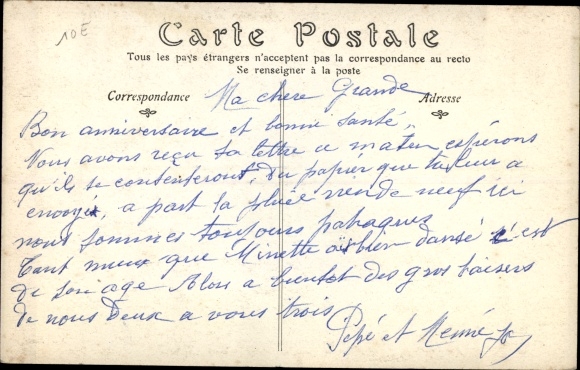 10E
Carte Postale
Tous les pays étrangers n'acceptent pas la correspondance au recto
Se renseigner à la poste
Correspondance
Adresse
Ma chere Grande
Bon anniversaire et bonne santé,
Nous avons reçu ta lettre ce matin espérons
qu'ils se contenteront, du papier que tu leur a
envoyé, a part la pluie rien de neuf ici
nous sommes toujours
Tant mieux que Minette a bien dansé c'est
de son age Alors a bientot des gros baisers
de nous deux a vous trois
Pépé et Mémé